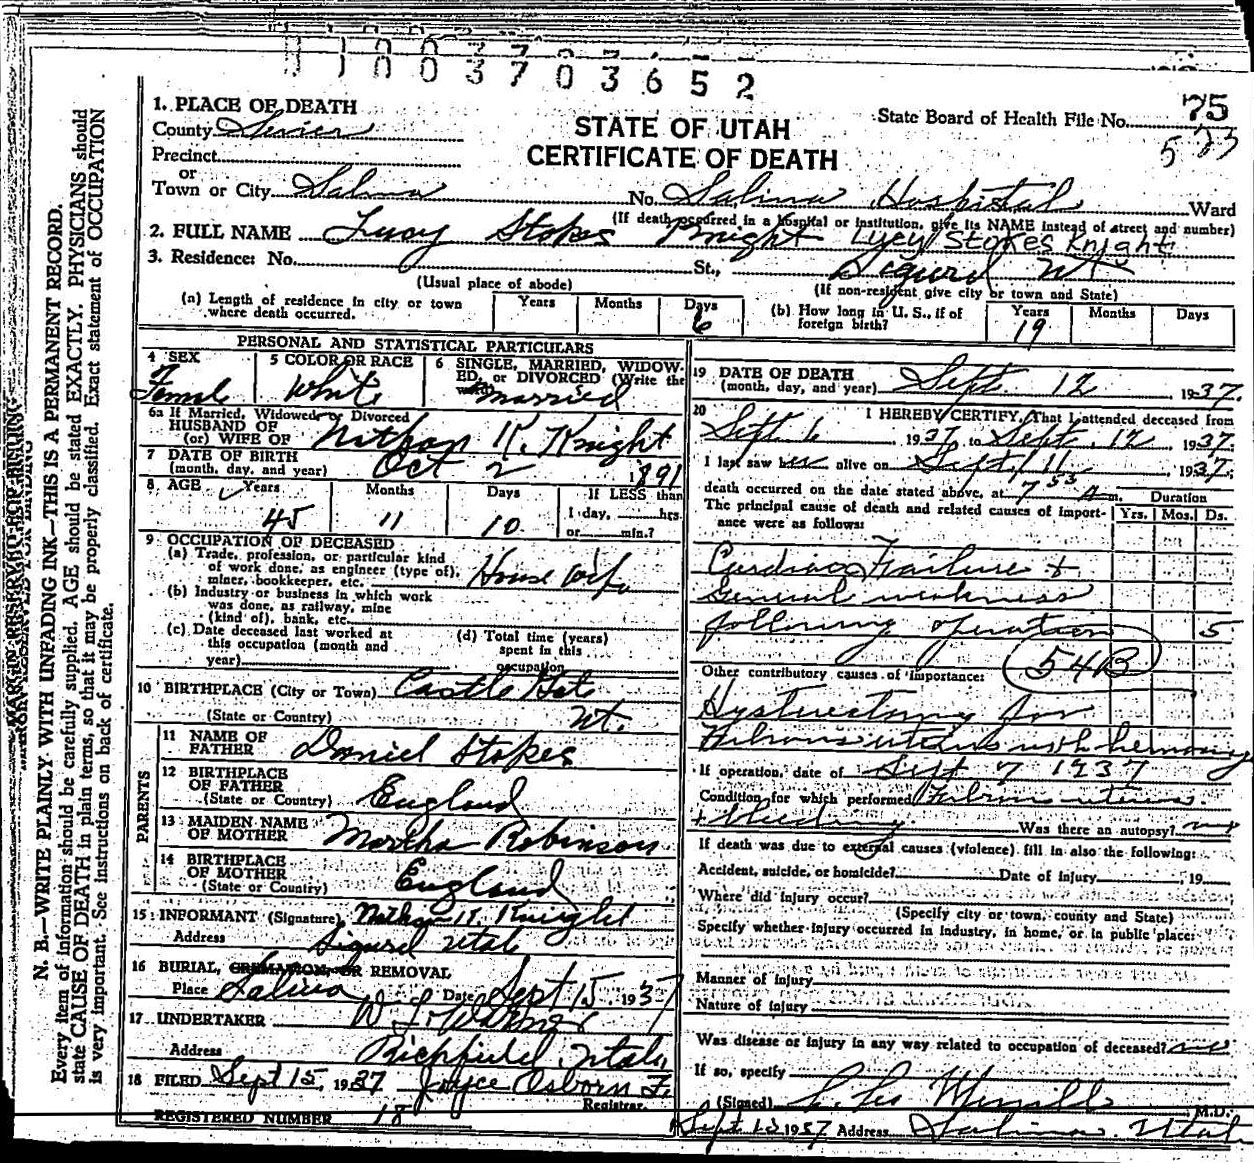 1003703652
1. PLACE OF DEATH
County Sevier
Precinct
or
Town or City Salina
STATE OF UTAH
CERTIFICATE OF DEATH
State Board of Health File No. 75
523
No. Salina Hospital Ward
(If death occurred in a hospital or institution, give its NAME instead of street and number)
2. FULL NAME Lucy Stokes Knight Lycy Stokes Knight
3. Residence: No. St., Sigurd Ut
(Usual place of abode) (If non-resident give city or town and State)
(a) Length of residence in city or town where death occurred. Years Months Days 6
(b) How long in U. S., if of foreign birth? Years 19 Months Days
PERSONAL AND STATISTICAL PARTICULARS
4 SEX Female
5 COLOR OR RACE White
6 SINGLE, MARRIED, WIDOWED, or DIVORCED (Write the Married
6a If Married, Widowed or Divorced
HUSBAND OF
(or) WIFE OF Nathan K. Knight
7 DATE OF BIRTH
(month, day, and year) Oct 2 1891
8 AGE Years 45 Months 11 Days 10 If LESS than
1 day, hrs.
or min.?
9 OCCUPATION OF DECEASED
(a) Trade, profession, or particular kind
of work done, as engineer (type of),
miner, bookkeeper, etc. House wife
(b) Industry or business in which work
was done, as railway, mine
(kind of), bank, etc.
(c) Date deceased last worked at
this occupation (month and
year)
(d) Total time (years)
spent in this
occupation
10 BIRTHPLACE (City or Town) Castle Gate
(State or Country) Ut.
PARENTS
11 NAME OF
FATHER Daniel Stokes
12 BIRTHPLACE
OF FATHER
(State or Country) England
13 MAIDEN NAME
OF MOTHER Martha Robinson
14 BIRTHPLACE
OF MOTHER
(State or Country) England
15 INFORMANT (Signature) Nathan K. Knight
Address Sigurd Utah
16 BURIAL, CREMATION, OR REMOVAL
Place Salina Date Sept 15, 1937
17 UNDERTAKER
Address Richfield, Utah
18 FILED Sept 15, 1937 Joyce Osborn F.
Registrar.
REGISTERED NUMBER 18
19 DATE OF DEATH
(month, day, and year) Sept. 12 1937.
20 I HEREBY CERTIFY, That I attended deceased from
Sept 6 1937, to Sept. 12 1937.
I last saw her alive on Sept. 11 1937.
death occurred on the date stated above, at 7 53 A m. Duration
The principal cause of death and related causes of importance were as follows: Yrs. Mos. Ds.
Cardiac Failure +
General weakness
following operation 5
54B
Other contributory causes of importance:
Hysterectomy for
Fibrous uterus with hemorrage
If operation, date of Sept 7 1937
Condition for which performed Fibrous uterus
+ bleeding. Was there an autopsy? no
If death was due to external causes (violence) fill in also the following:
Accident, suicide, or homicide? Date of injury 19
Where did injury occur?
(Specify city or town, county and State)
Specify whether injury occurred in industry, in home, or in public place:
Manner of injury
Nature of injury
Was disease or injury in any way related to occupation of deceased? no
If so, specify
(Signed) Merrill M.D.
Sept 13 1937 Address Salina, Utah
N. B.—WRITE PLAINLY WITH UNFADING INK—THIS IS A PERMANENT RECORD.
Every item of information should be carefully supplied. AGE should be stated EXACTLY. PHYSICIANS should
state CAUSE OF DEATH in plain terms, so that it may be properly classified. Exact statement of OCCUPATION
is very important. See instructions on back of certificate.